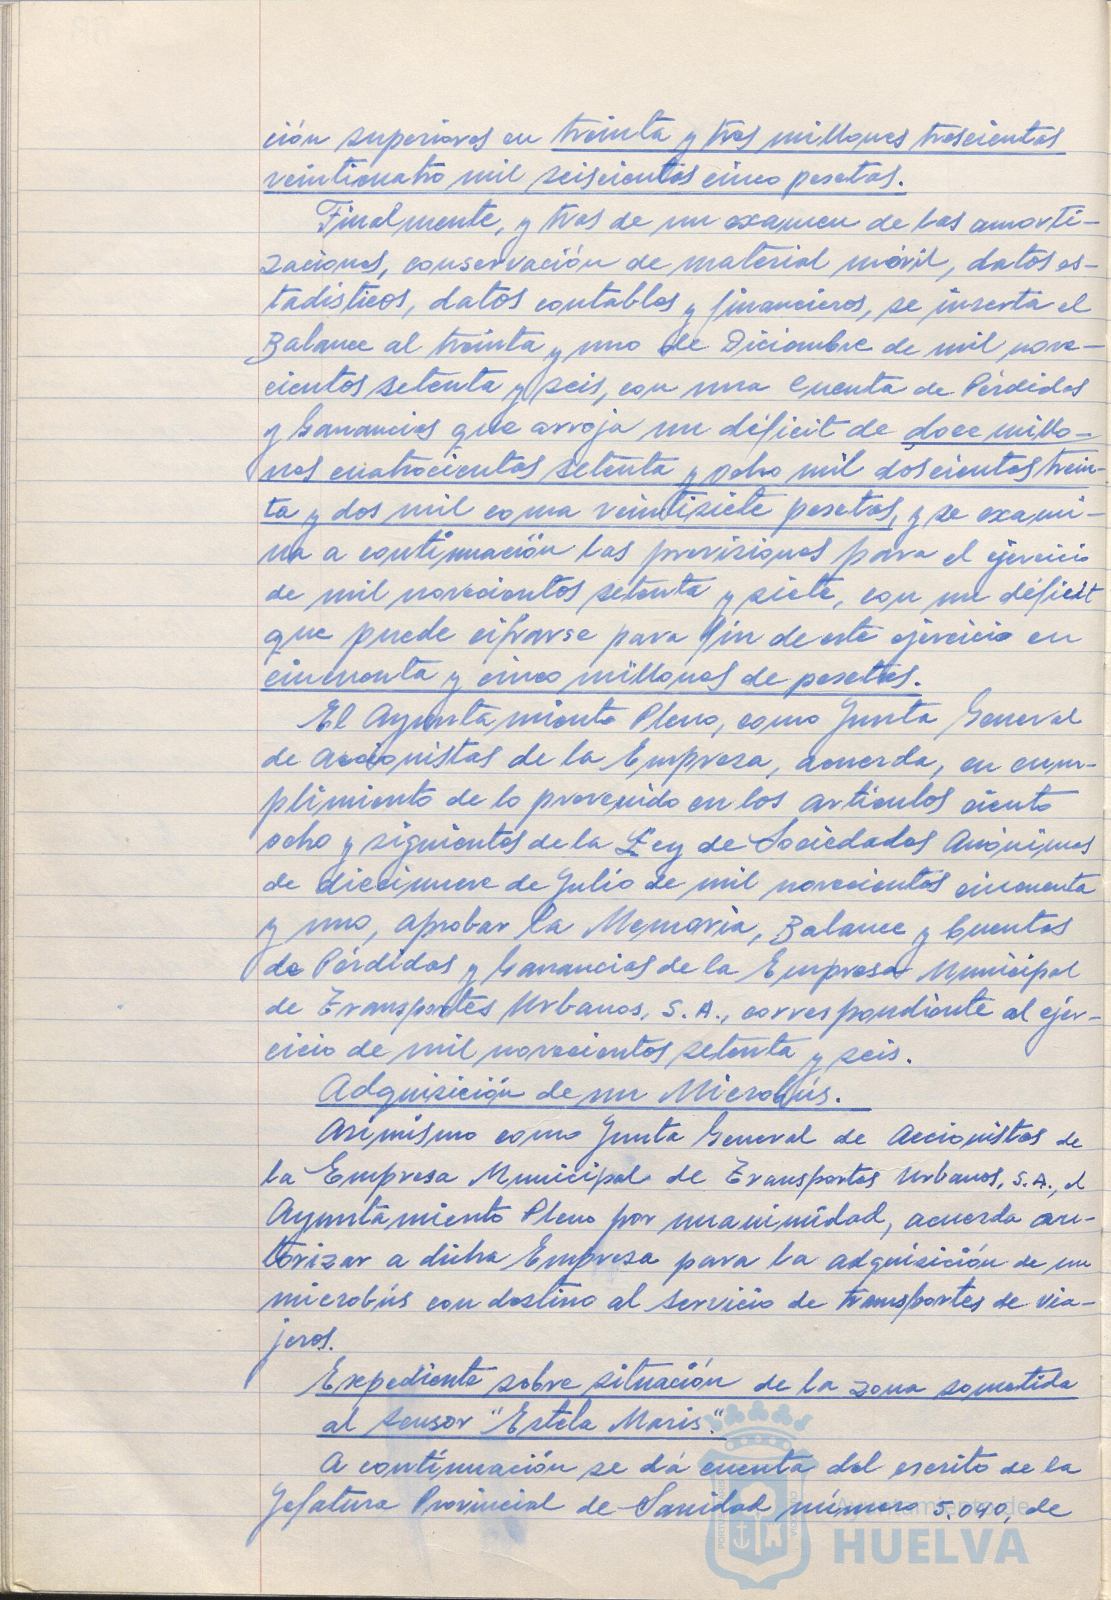 ción superiores en treinta y tres millones trescientas
veinticuatro mil seiscientas cinco pesetas.
Finalmente, y tras de un examen de las amorti-
zaciones, conservación de material móvil, datos es-
tadísticos, datos contables y financieros, se inserta el
Balance al treinta y uno de Diciembre de mil nove-
cientos setenta y seis, con una Cuenta de Pérdidas
y Ganancias que arroja un déficit de doce millo-
nes cuatrocientas setenta y ocho mil doscientas trein-
ta y dos mil coma veintisiete pesetas, y se exami-
na a continuación las previsiones para el ejercicio
de mil novecientos setenta y siete, con un déficit
que puede cifrarse para fin de este ejercicio en
cincuenta y cinco millones de pesetas.
El Ayuntamiento Pleno, como Junta General
de Accionistas de la Empresa, acuerda, en cum-
plimiento de lo prevenido en los artículos ciento
ocho y siguientes de la Ley de Sociedades Anónimas
de diecinueve de Julio de mil novecientos cincuenta
y uno, aprobar la Memoria, Balance y Cuentas
de Pérdidas y Ganancias de la Empresa Municipal
de Transportes Urbanos, S.A., correspondiente al ejer-
cicio de mil novecientos setenta y seis.
Adquisición de un Microbús.
Asimismo como Junta General de Accionistas de
la Empresa Municipal de Transportes Urbanos, S.A., el
Ayuntamiento Pleno por unanimidad, acuerda au-
torizar a dicha Empresa para la adquisición de un
microbús con destino al servicio de transportes de via-
jeros.
Expediente sobre situación de la zona sometida
al sensor "Estela Maris".
A continuación se dá cuenta del escrito de la
Jefatura Provincial de Sanidad número 5.090, de
Ayuntamiento de
HUELVA